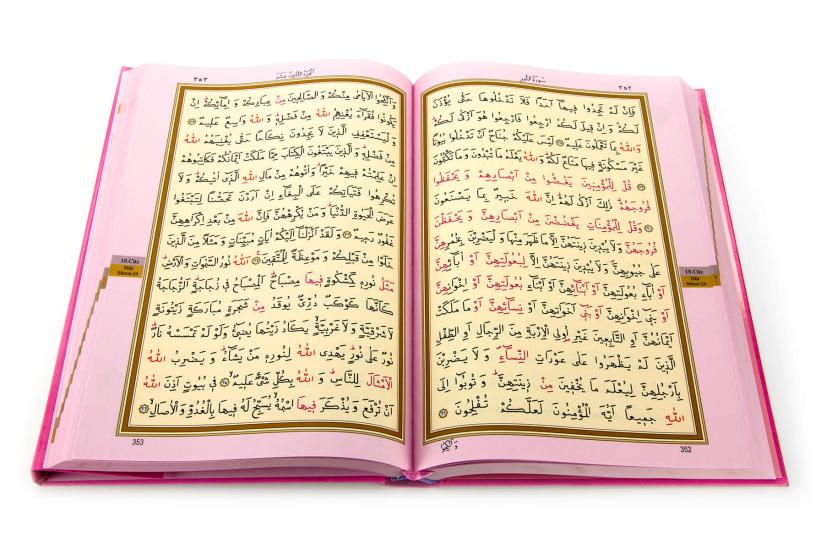 ٣٥٢
سورة النور
فَاِنْ لَمْ تَجِدُوا فِيهَا اَحَدًا فَلَا تَدْخُلُوهَا حَتّٰى يُؤْذَنَ
لَكُمْ وَ اِنْ قِيلَ لَكُمُ ارْجِعُوا فَارْجِعُوا هُوَ اَزْكٰى لَكُمْ
وَاللّٰهُ بِمَا تَعْمَلُونَ عَلِيمٌ لَيْسَ عَلَيْكُمْ جُنَاحٌ اَنْ تَدْخُلُوا بُيُوتًا
غَيْرَ مَسْكُونَةٍ فِيهَا مَتَاعٌ لَكُمْ وَاللّٰهُ يَعْلَمُ مَا تُبْدُونَ وَ مَا تَكْتُمُونَ
قُلْ لِلْمُؤْمِنِينَ يَغُضُّوا مِنْ اَبْصَارِهِمْ وَ يَحْفَظُوا
فُرُوجَهُمْ ذٰلِكَ اَزْكٰى لَهُمْ اِنَّ اللّٰهَ خَبِيرٌ بِمَا يَصْنَعُونَ
وَ قُلْ لِلْمُؤْمِنَاتِ يَغْضُضْنَ مِنْ اَبْصَارِهِنَّ وَ يَحْفَظْنَ
فُرُوجَهُنَّ وَلَا يُبْدِينَ زِينَتَهُنَّ اِلَّا مَا ظَهَرَ مِنْهَا وَ لْيَضْرِبْنَ بِخُمُرِهِنَّ
عَلٰى جُيُوبِهِنَّ وَلَا يُبْدِينَ زِينَتَهُنَّ اِلَّا لِبُعُولَتِهِنَّ اَوْ اٰبَائِهِنَّ
اَوْ اٰبَاءِ بُعُولَتِهِنَّ اَوْ اَبْنَائِهِنَّ اَوْ اَبْنَاءِ بُعُولَتِهِنَّ اَوْ اِخْوَانِهِنَّ
اَوْ بَنِى اِخْوَانِهِنَّ اَوْ بَنِى اَخَوَاتِهِنَّ اَوْ نِسَائِهِنَّ اَوْ مَا مَلَكَتْ
اَيْمَانُهُنَّ اَوِ التَّابِعِينَ غَيْرِ اُولِى الْاِرْبَةِ مِنَ الرِّجَالِ اَوِ الطِّفْلِ
الَّذِينَ لَمْ يَظْهَرُوا عَلٰى عَوْرَاتِ النِّسَاءِ وَ لَا يَضْرِبْنَ
بِاَرْجُلِهِنَّ لِيُعْلَمَ مَا يُخْفِينَ مِنْ زِينَتِهِنَّ وَ تُوبُوا اِلَى
اللّٰهِ جَمِيعًا اَيُّهَ الْمُؤْمِنُونَ لَعَلَّكُمْ تُفْلِحُونَ
وَ اَنْكِحُوا
352
18.Cüz
Nûr
Sûresi:24
٣٥٣
الجزء الثامن عشر
وَ اَنْكِحُوا الْاَيَامٰى مِنْكُمْ وَ الصَّالِحِينَ مِنْ عِبَادِكُمْ وَ اِمَائِكُمْ اِنْ
يَكُونُوا فُقَرَاءَ يُغْنِهِمُ اللّٰهُ مِنْ فَضْلِهِ وَ اللّٰهُ وَاسِعٌ عَلِيمٌ
وَ لْيَسْتَعْفِفِ الَّذِينَ لَا يَجِدُونَ نِكَاحًا حَتّٰى يُغْنِيَهُمُ اللّٰهُ
مِنْ فَضْلِهِ وَ الَّذِينَ يَبْتَغُونَ الْكِتَابَ مِمَّا مَلَكَتْ اَيْمَانُكُمْ فَكَاتِبُوهُمْ
اِنْ عَلِمْتُمْ فِيهِمْ خَيْرًا وَ اٰتُوهُمْ مِنْ مَالِ اللّٰهِ الَّذِى اٰتٰيكُمْ وَ لَا
تُكْرِهُوا فَتَيَاتِكُمْ عَلَى الْبِغَاءِ اِنْ اَرَدْنَ تَحَصُّنًا لِتَبْتَغُوا
عَرَضَ الْحَيٰوةِ الدُّنْيَا وَ مَنْ يُكْرِهْهُنَّ فَاِنَّ اللّٰهَ مِنْ بَعْدِ اِكْرَاهِهِنَّ
غَفُورٌ رَحِيمٌ وَ لَقَدْ اَنْزَلْنَا اِلَيْكُمْ اٰيَاتٍ مُبَيِّنَاتٍ وَ مَثَلًا مِنَ الَّذِينَ
خَلَوْا مِنْ قَبْلِكُمْ وَ مَوْعِظَةً لِلْمُتَّقِينَ اَللّٰهُ نُورُ السَّمٰوَاتِ وَ الْاَرْضِ
مَثَلُ نُورِهِ كَمِشْكٰوةٍ فِيهَا مِصْبَاحٌ اَلْمِصْبَاحُ فِى زُجَاجَةٍ اَلزُّجَاجَةُ
كَاَنَّهَا كَوْكَبٌ دُرِّىٌّ يُوقَدُ مِنْ شَجَرَةٍ مُبَارَكَةٍ زَيْتُونَةٍ
لَا شَرْقِيَّةٍ وَ لَا غَرْبِيَّةٍ يَكَادُ زَيْتُهَا يُضِىءُ وَلَوْ لَمْ تَمْسَسْهُ نَارٌ
نُورٌ عَلٰى نُورٍ يَهْدِى اللّٰهُ لِنُورِهِ مَنْ يَشَاءُ وَ يَضْرِبُ اللّٰهُ
الْاَمْثَالَ لِلنَّاسِ وَ اللّٰهُ بِكُلِّ شَىْءٍ عَلِيمٌ فِى بُيُوتٍ اَذِنَ اللّٰهُ
اَنْ تُرْفَعَ وَ يُذْكَرَ فِيهَا اسْمُهُ يُسَبِّحُ لَهُ فِيهَا بِالْغُدُوِّ وَ الْاٰصَالِ
353
18.Cüz
Nûr
Sûresi:24